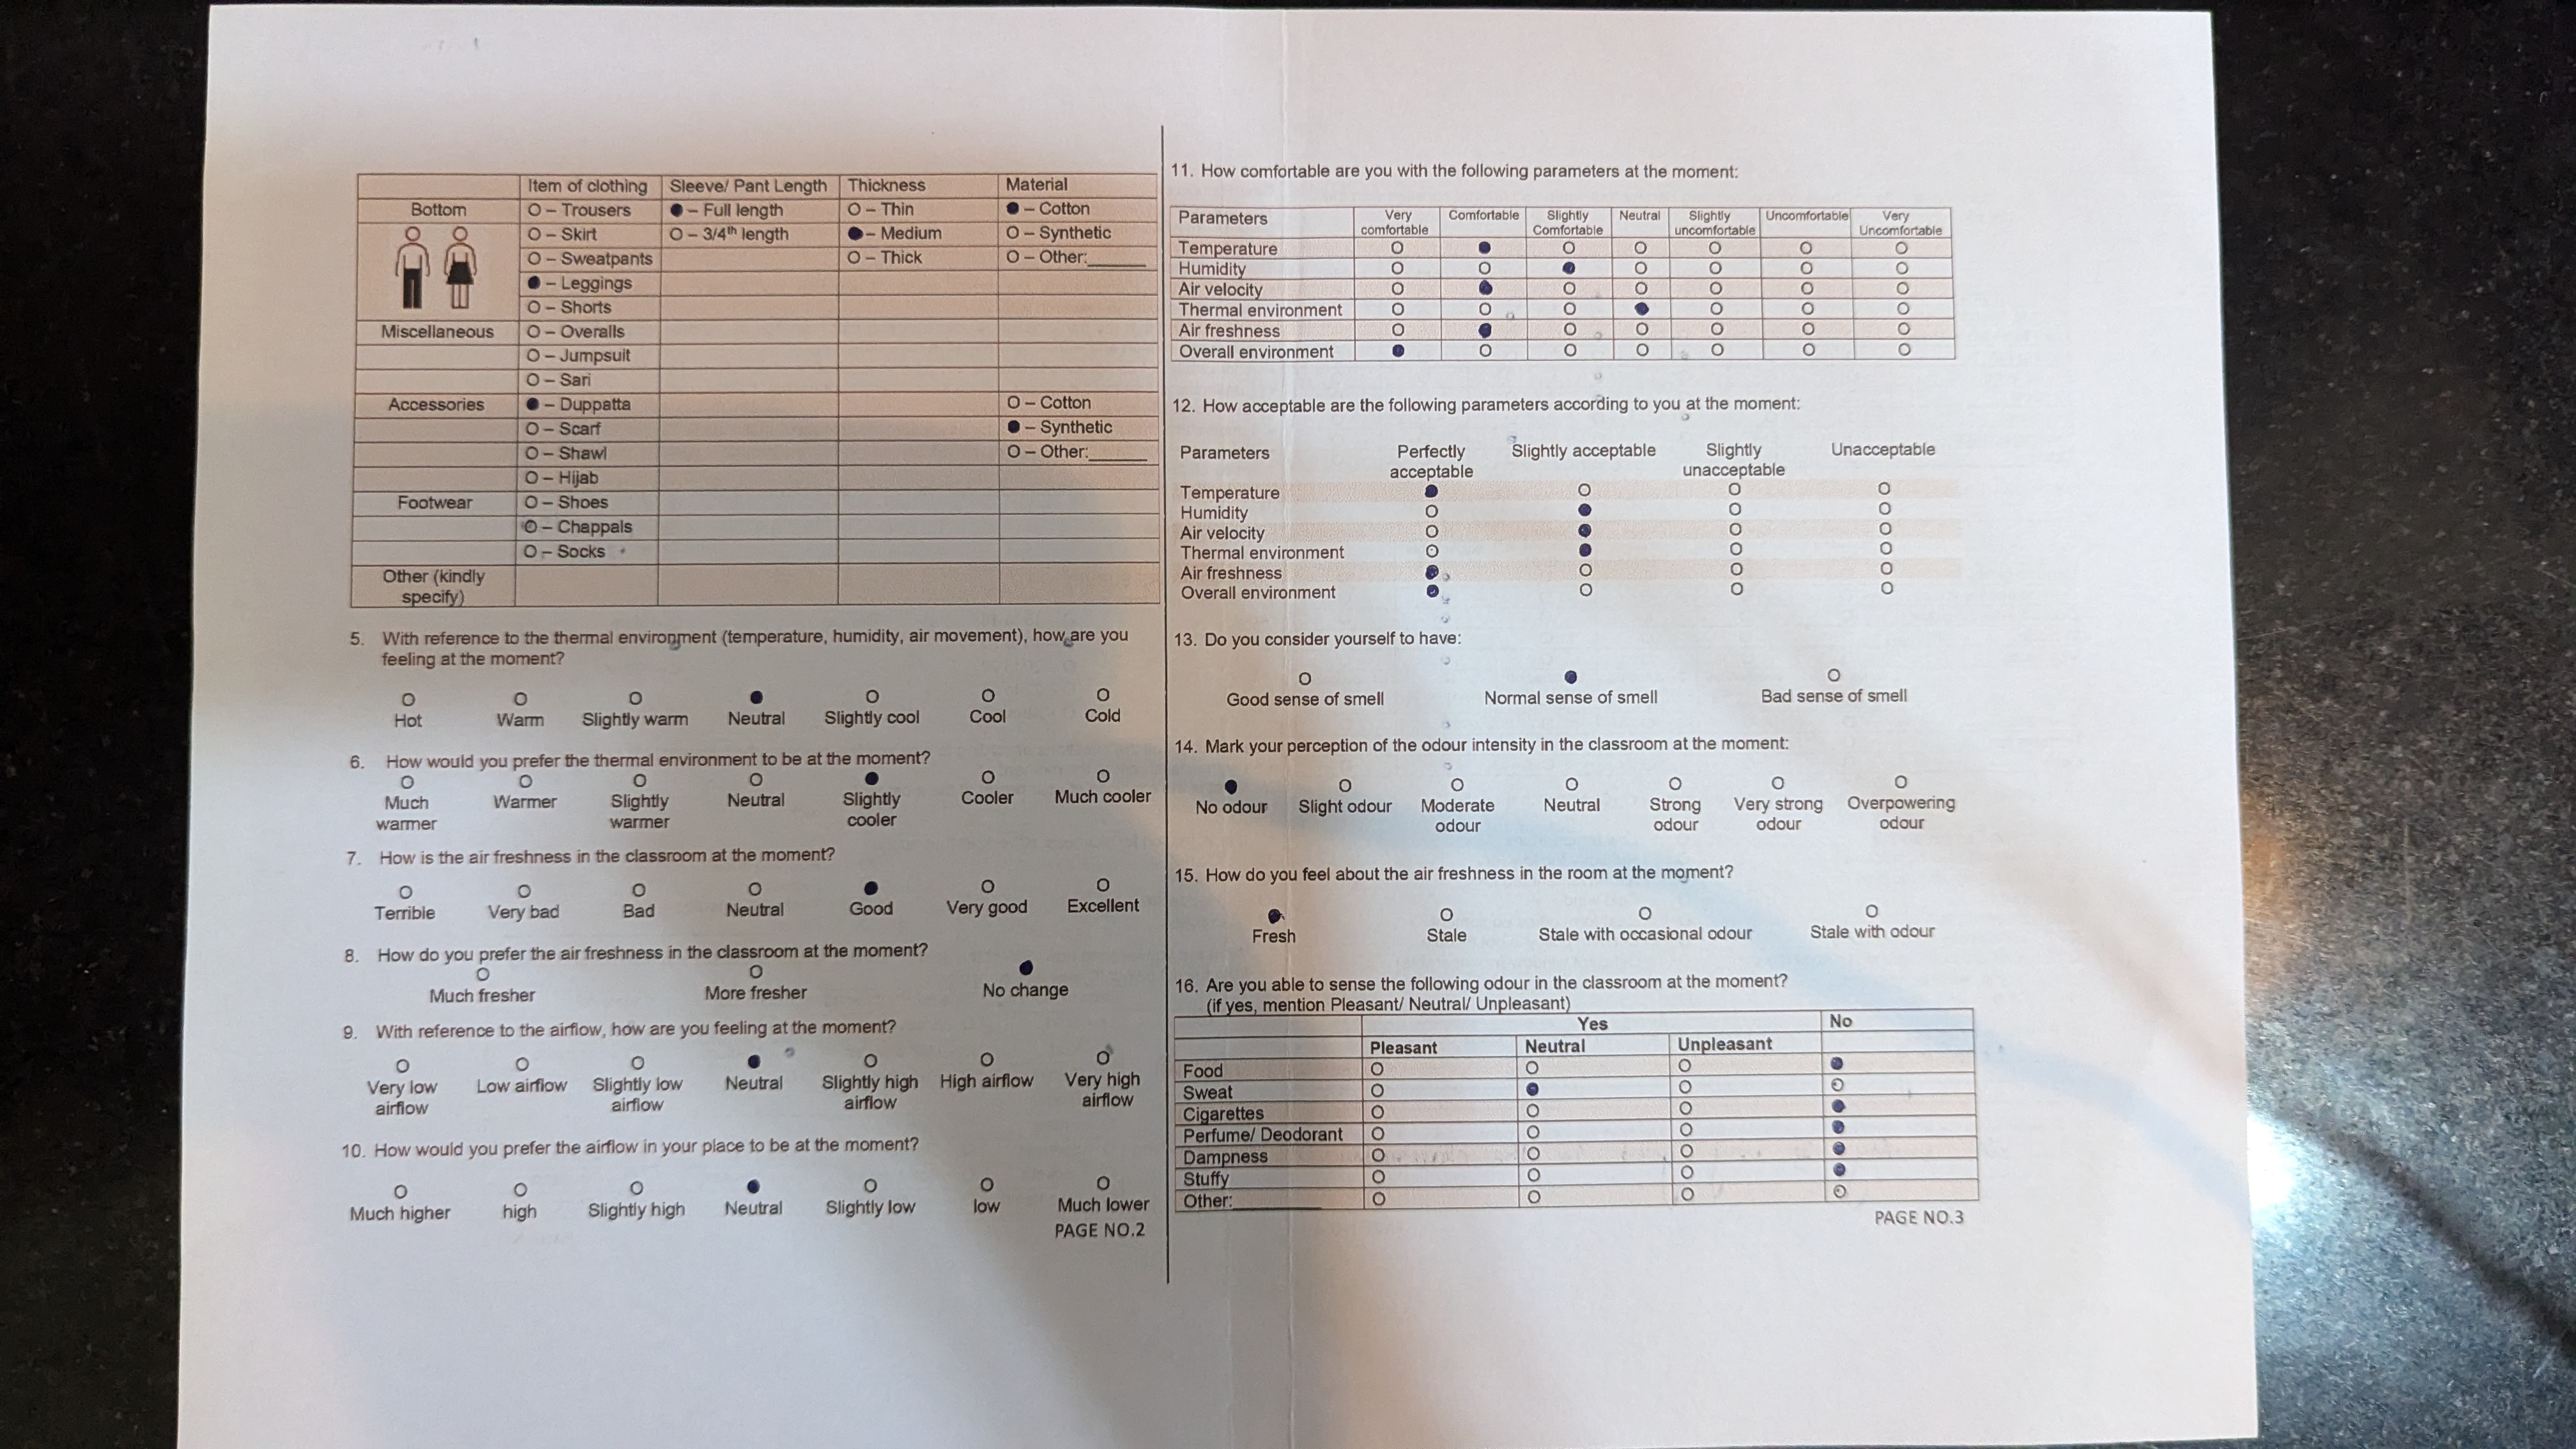 Item of clothing Sleeve/ Pant Length Thickness Material
Bottom O – Trousers ● – Full length O – Thin ● – Cotton
O – Skirt O – 3/4th length ● – Medium O – Synthetic
O – Sweatpants O – Thick O – Other:______
● – Leggings
O – Shorts
Miscellaneous O – Overalls
O – Jumpsuit
O – Sari
Accessories ● – Duppatta O – Cotton
O – Scarf ● – Synthetic
O – Shawl O – Other:______
O – Hijab
Footwear O – Shoes
O – Chappals
O – Socks
Other (kindly
specify)
5. With reference to the thermal environment (temperature, humidity, air movement), how are you
feeling at the moment?
O O O ● O O O
Hot Warm Slightly warm Neutral Slightly cool Cool Cold
6. How would you prefer the thermal environment to be at the moment?
O O O O ● O O
Much Warmer Slightly Neutral Slightly Cooler Much cooler
warmer warmer cooler
7. How is the air freshness in the classroom at the moment?
O O O O ● O O
Terrible Very bad Bad Neutral Good Very good Excellent
8. How do you prefer the air freshness in the classroom at the moment?
O O ●
Much fresher More fresher No change
9. With reference to the airflow, how are you feeling at the moment?
O O O ● O O O
Very low Low airflow Slightly low Neutral Slightly high High airflow Very high
airflow airflow airflow airflow
10. How would you prefer the airflow in your place to be at the moment?
O O O ● O O O
Much higher high Slightly high Neutral Slightly low low Much lower
PAGE NO.2
11. How comfortable are you with the following parameters at the moment:
Parameters Very Comfortable Slightly Neutral Slightly Uncomfortable Very
comfortable Comfortable uncomfortable Uncomfortable
Temperature O ● O O O O O
Humidity O O ● O O O O
Air velocity O ● O O O O O
Thermal environment O O O ● O O O
Air freshness O ● O O O O O
Overall environment ● O O O O O O
12. How acceptable are the following parameters according to you at the moment:
Parameters Perfectly Slightly acceptable Slightly Unacceptable
acceptable unacceptable
Temperature ● O O O
Humidity O ● O O
Air velocity O ● O O
Thermal environment O ● O O
Air freshness ● O O O
Overall environment ● O O O
13. Do you consider yourself to have:
O ● O
Good sense of smell Normal sense of smell Bad sense of smell
14. Mark your perception of the odour intensity in the classroom at the moment:
● O O O O O O
No odour Slight odour Moderate Neutral Strong Very strong Overpowering
odour odour odour odour
15. How do you feel about the air freshness in the room at the moment?
● O O O
Fresh Stale Stale with occasional odour Stale with odour
16. Are you able to sense the following odour in the classroom at the moment?
(if yes, mention Pleasant/ Neutral/ Unpleasant)
Yes No
Pleasant Neutral Unpleasant
Food O O O ●
Sweat O ● O O
Cigarettes O O O ●
Perfume/ Deodorant O O O ●
Dampness O O O ●
Stuffy O O O ●
Other:__________ O O O O
PAGE NO.3